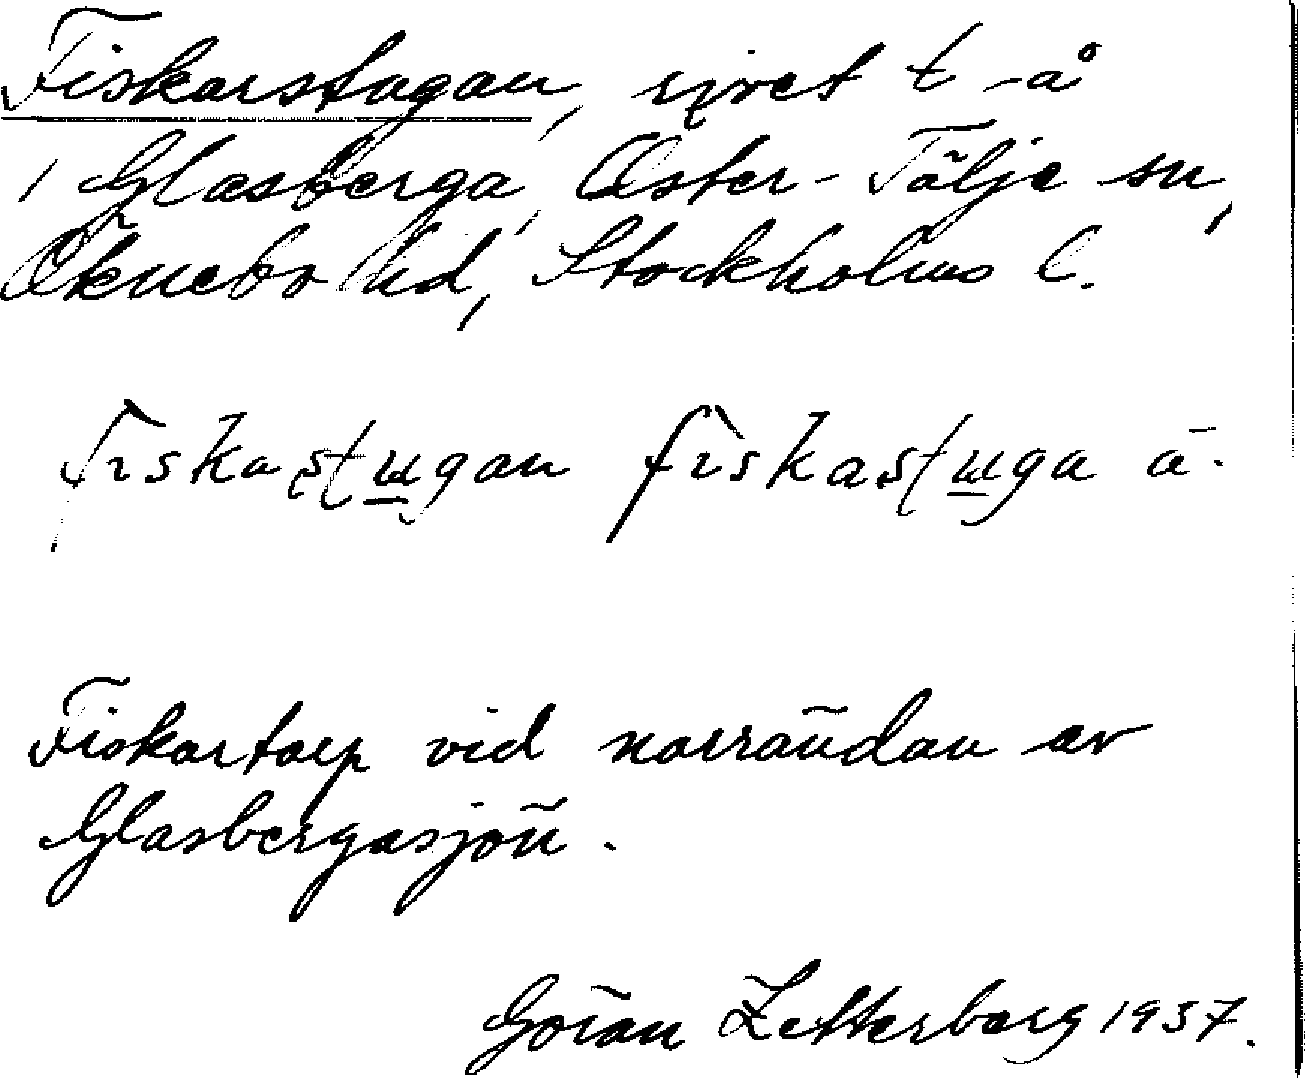 Fiskarstugan, rivet t -å
i Glasberga, Öster-Tälje sn,
Öknebo hd, Stockholms l.
Fiskastugan fiskastuga ä-
Fiskartorp vid norrändan av
Glasbergasjön.
Göran Zetterberg 1937.